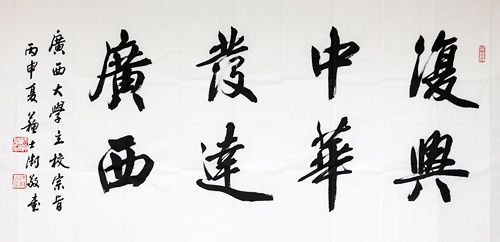 復興
中華
發達
廣西
廣西大學立校宗旨
丙申夏蘇士澍敬書